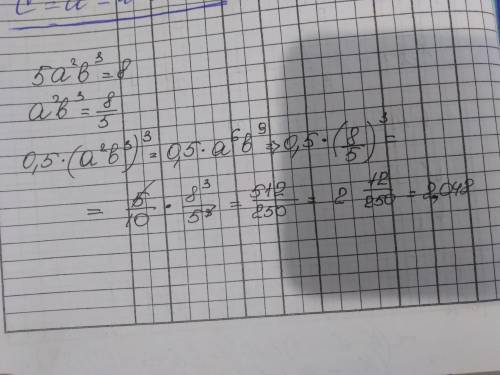 5a²b³=8
a²b³=8/5
0,5·(a²b³)³=0,5·a⁶b⁹⇒0,5·(8/5)³=
=5/10·8³/5³=512/250=2 12/250=2,048